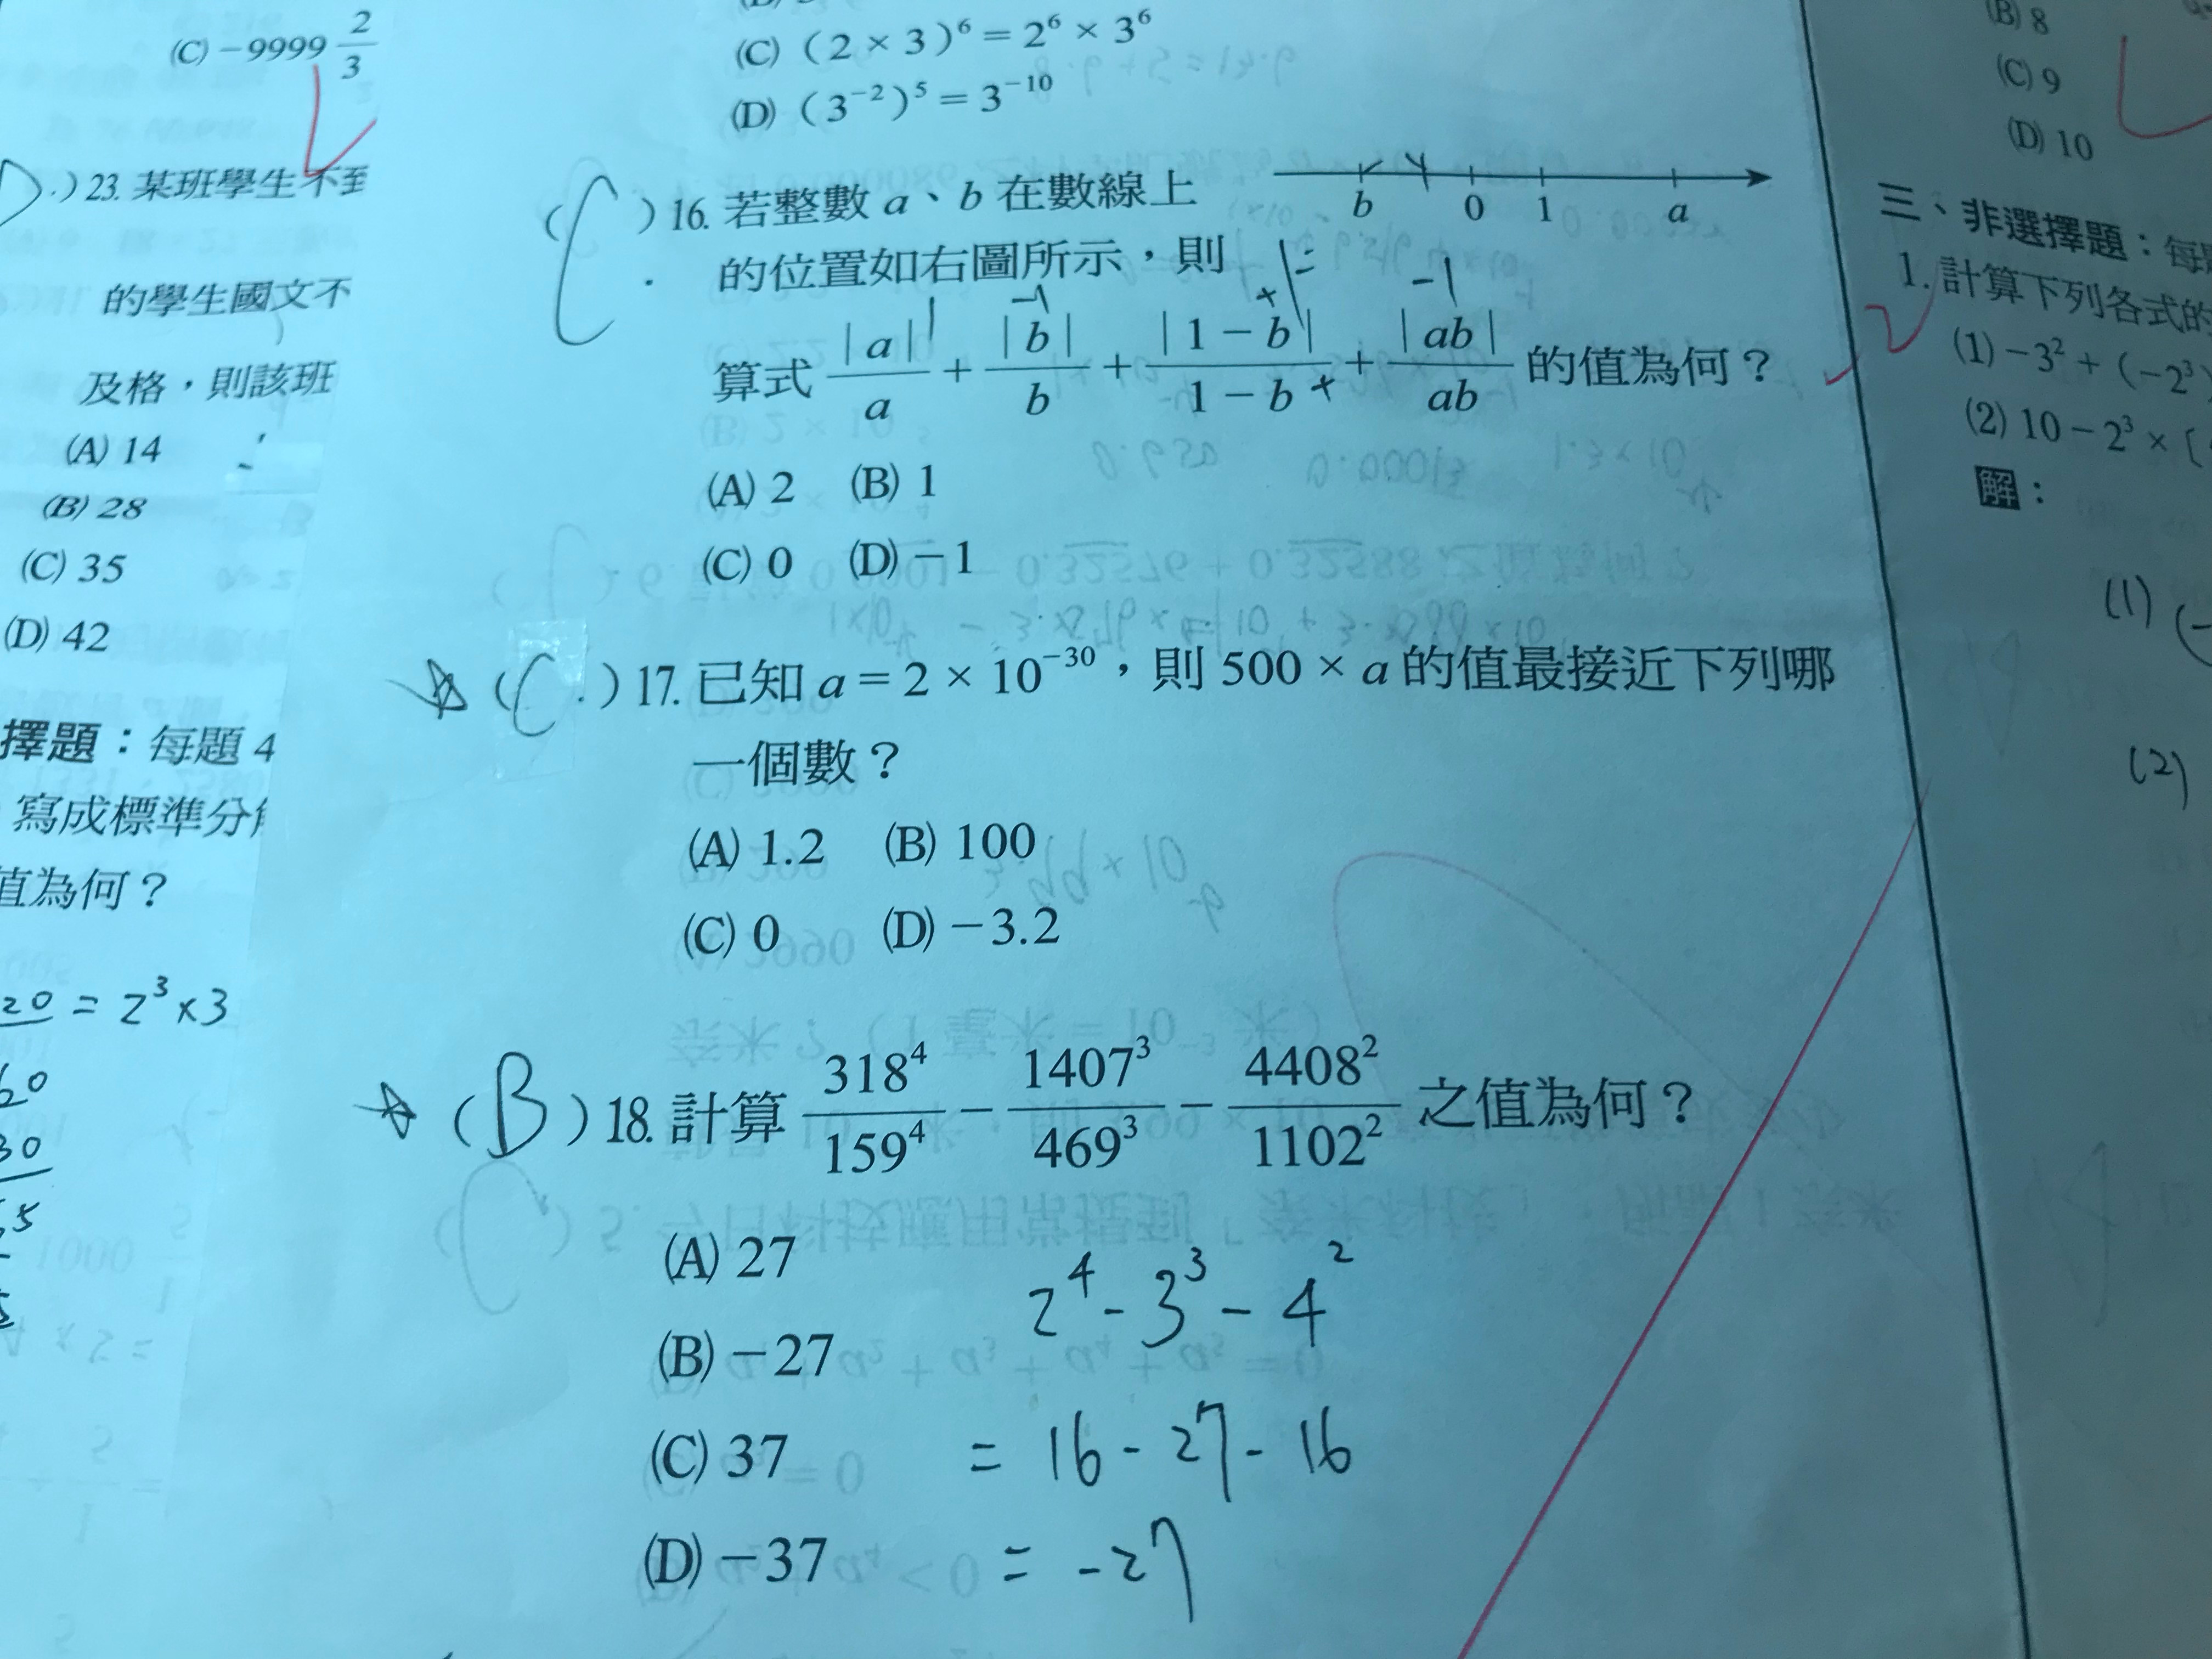 (C) -9999 2/3
.) 23. 某班學生不到
的學生國文不
及格，則該班
(A) 14
(B) 28
(C) 35
(D) 42
擇題：每題 4
寫成標準分
值為何？
20 = 2³×3
60
30
(C) (2 × 3)⁶ = 2⁶ × 3⁶
(D) (3⁻²)⁵ = 3⁻¹⁰
(C) 16. 若整數 a、b 在數線上
b 0 1 a
的位置如右圖所示，則
1 -1 -1
算式 |a|/a + |b|/b + |1-b|/(1-b) + |ab|/ab 的值為何？
(A) 2 (B) 1
(C) 0 (D) -1
☆ (C.) 17. 已知 a = 2 × 10⁻³⁰，則 500 × a 的值最接近下列哪
一個數？
(A) 1.2 (B) 100
(C) 0 (D) -3.2
☆ (B) 18. 計算 318⁴/159⁴ - 1407³/469³ - 4408²/1102² 之值為何？
(A) 27
(B) -27
(C) 37
(D) -37
2⁴ - 3³ - 4²
= 16 - 27 - 16
= -27
(B) 8
(C) 9
(D) 10
三、非選擇題：每
1. 計算下列各式的
(1) -3² + (-2³)
(2) 10 - 2³ × [
解：
(1) (-
(2)